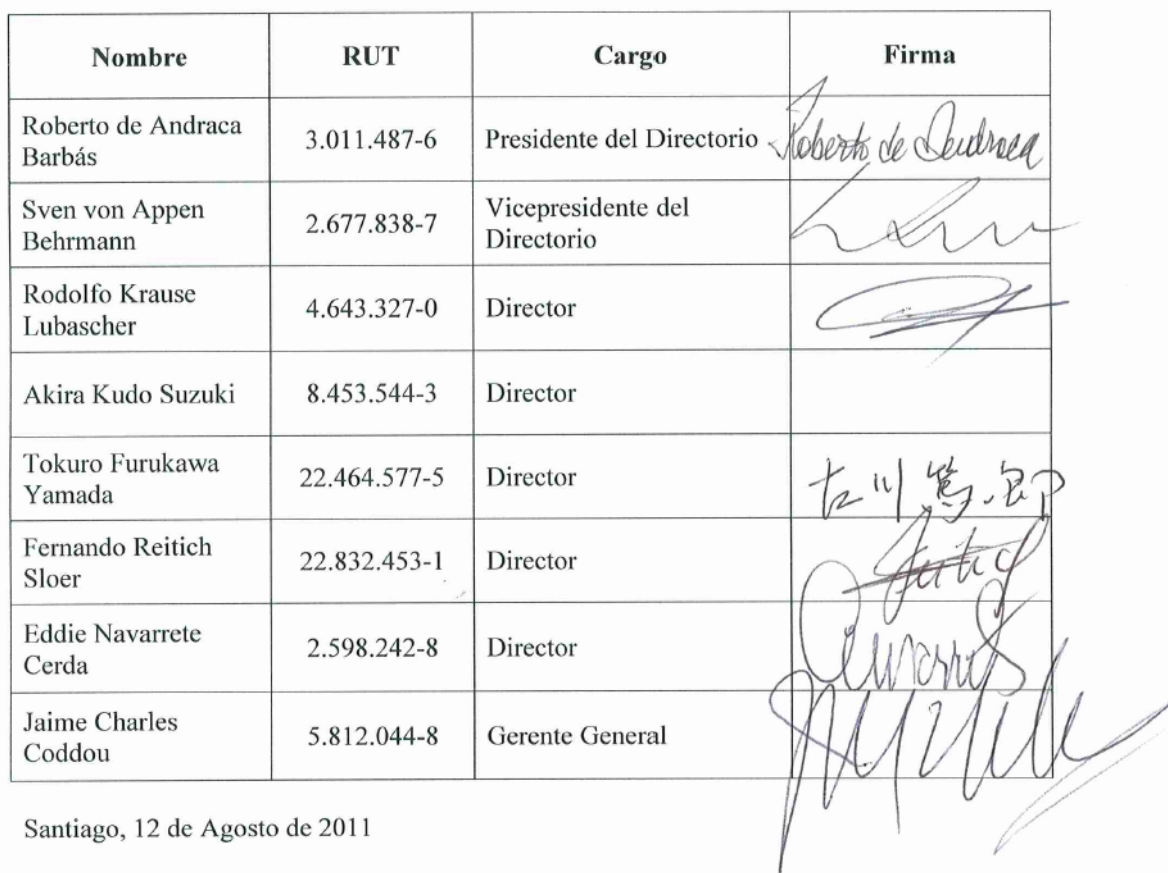 Nombre RUT Cargo Firma
Roberto de Andraca
Barbás
3.011.487-6
Presidente del Directorio
Roberto de Andraca
Sven von Appen
Behrmann
2.677.838-7
Vicepresidente del
Directorio
Rodolfo Krause
Lubascher
4.643.327-0
Director
Akira Kudo Suzuki
8.453.544-3
Director
Tokuro Furukawa
Yamada
22.464.577-5
Director
古川篤郎
Fernando Reitich
Sloer
22.832.453-1
Director
Eddie Navarrete
Cerda
2.598.242-8
Director
Jaime Charles
Coddou
5.812.044-8
Gerente General
Santiago, 12 de Agosto de 2011